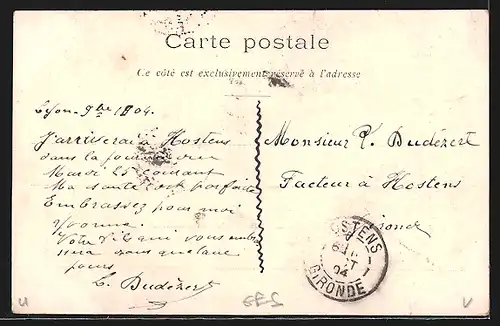 Carte postale
Ce côté est exclusivement réservé à l'adresse
Lyon. 9bre 1904.
J'arriverai à Hostens
dans la journée du
Mardi 25 courant
Ma santé est parfaite
Embrassez pour moi
Yvonne.
Votre fils qui vous embras
sera sous quelques
jours
L. Dudézert
Monsieur P. Dudézert
Facteur à Hostens
Gironde
HOSTENS
04
GIRONDE